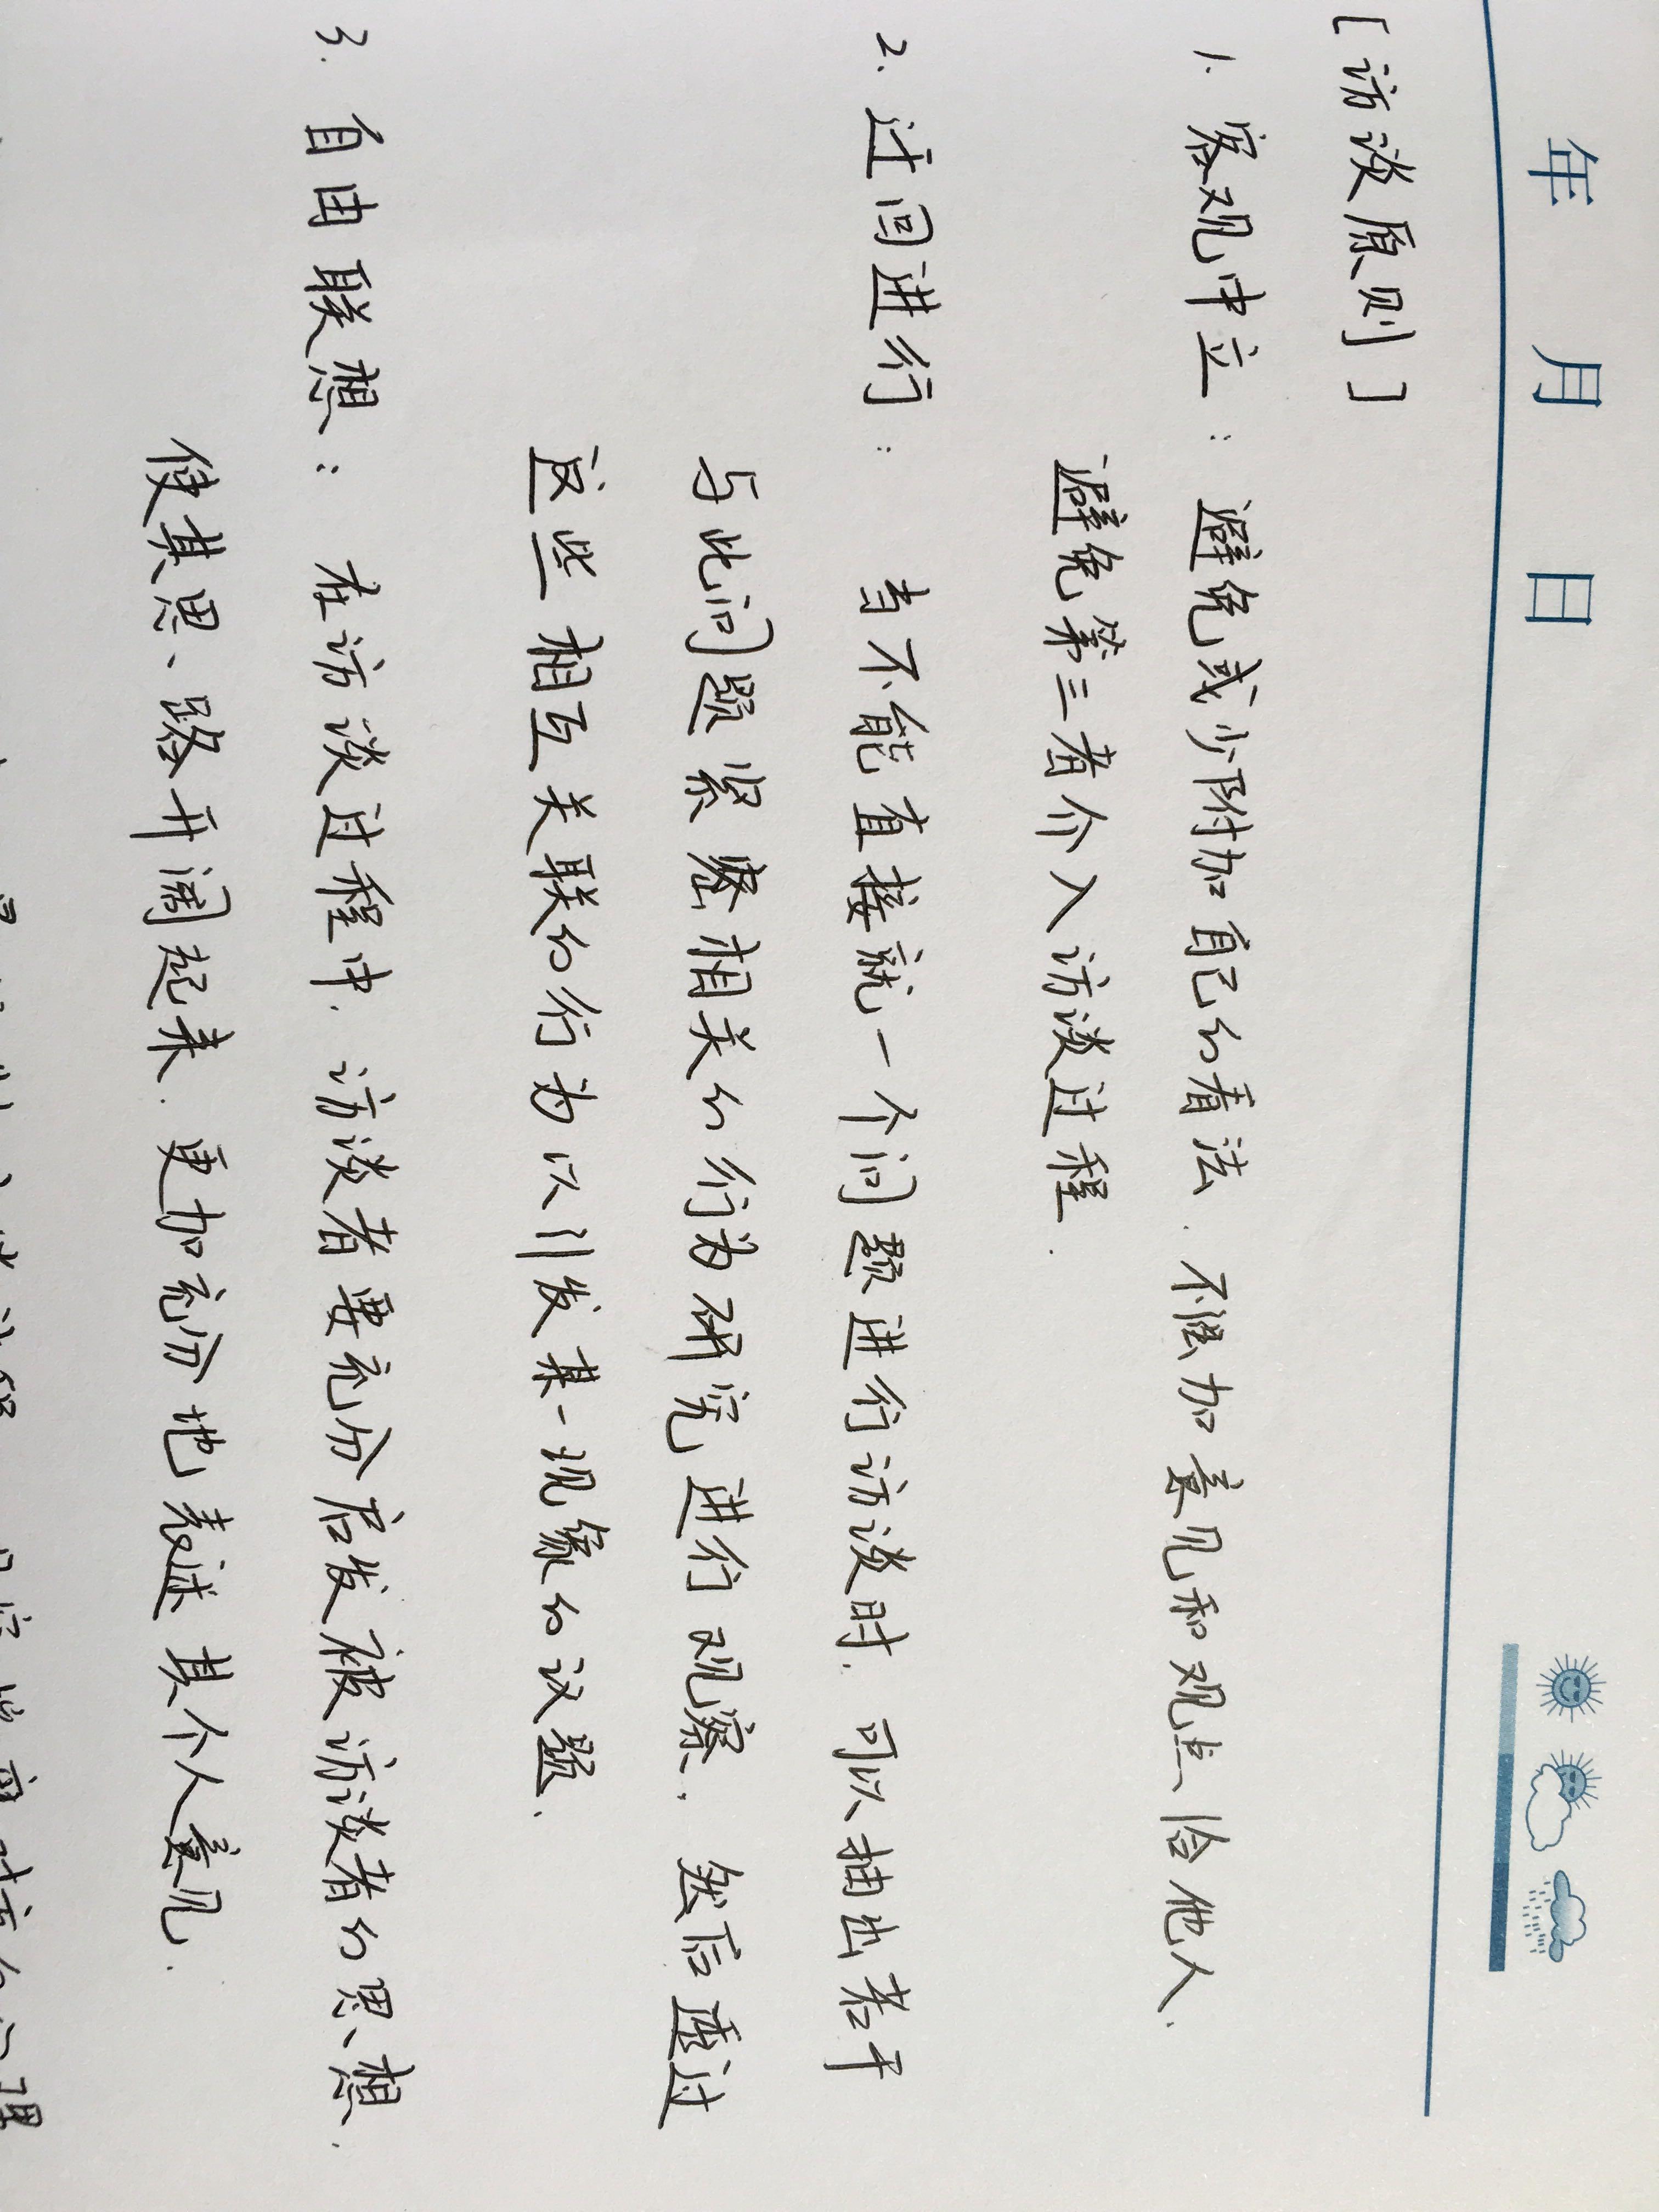 年 月 日
[访谈原则]
1. 客观中立: 避免或少附加自己的看法. 不强加意见和观点给他人.
避免第三者介入访谈过程.
2. 迂回进行: 当不能直接就一个问题进行访谈时. 可以抽出若干
与此问题紧密相关的行为研究进行观察. 然后透过
这些相互关联的行为以引发某一现象的议题.
3. 自由联想: 在访谈过程中. 访谈者要充分启发被访谈者的思想.
使其思路开阔起来. 更加充分地表述其个人意见.